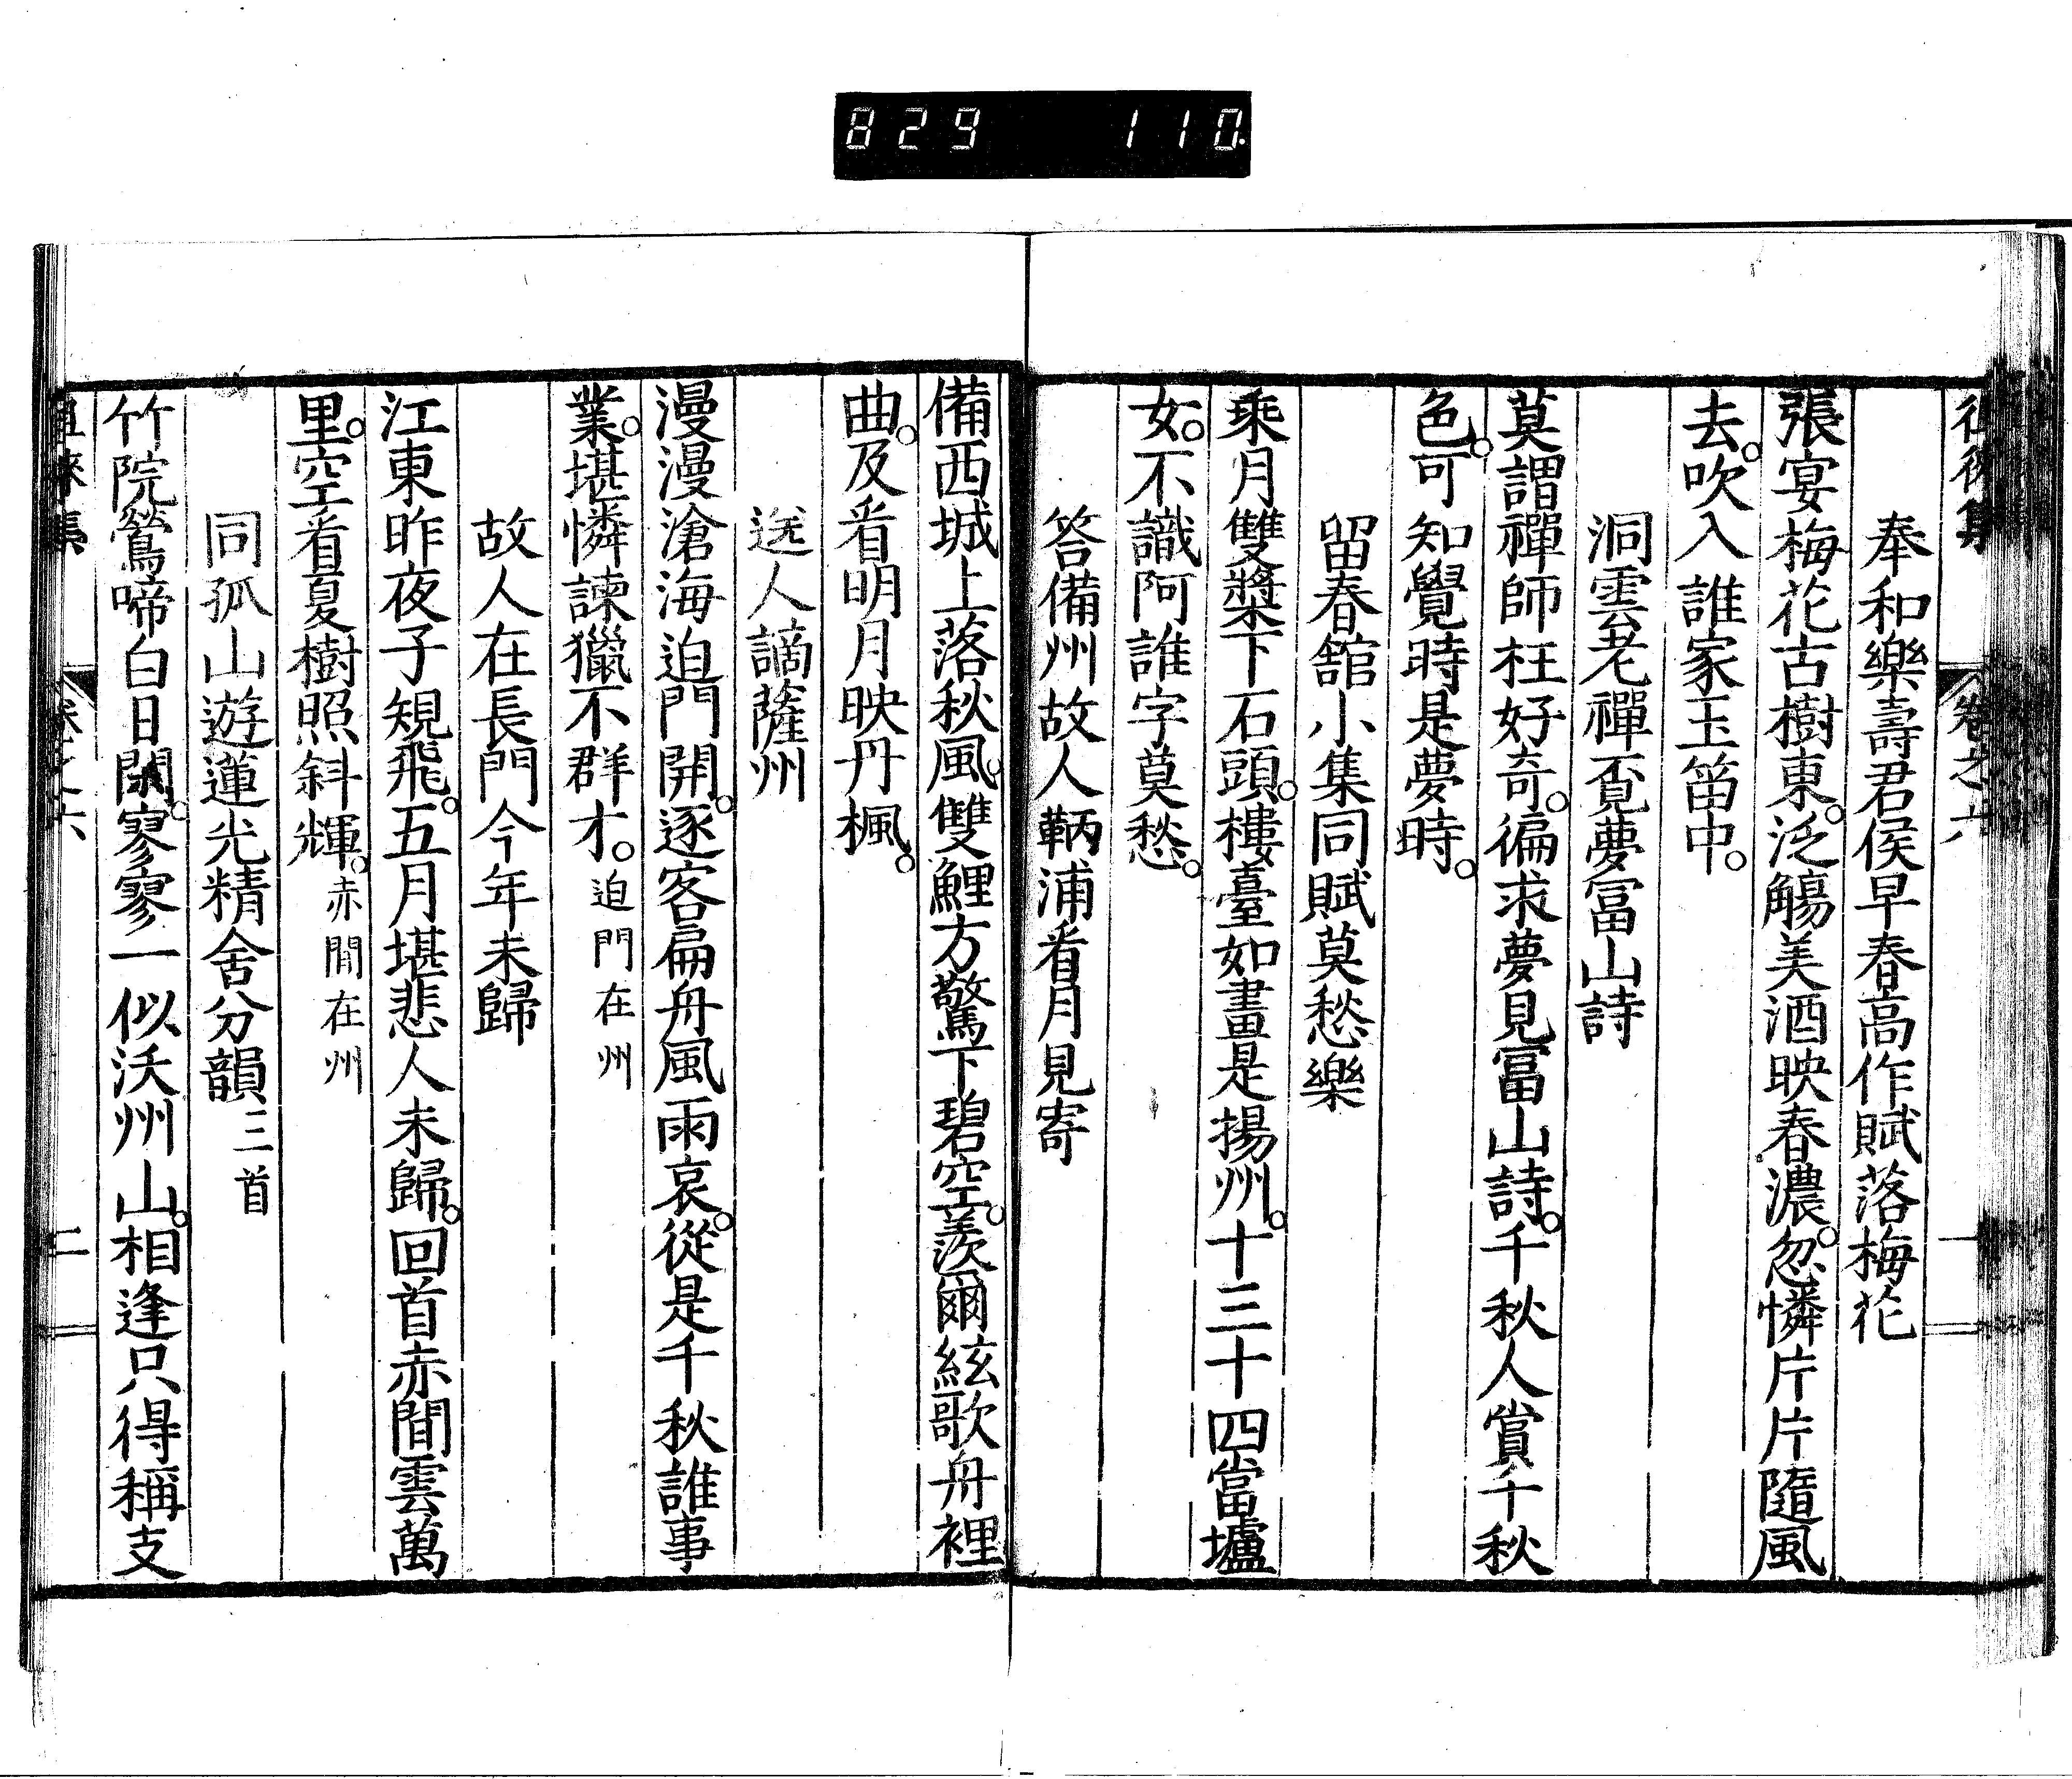 829 110
徂徠集 卷之六 一
奉和樂壽君侯早春高作賦落梅花
張宴梅花古樹東。泛觴美酒映春濃。忽憐片片隨風
去。吹入誰家玉笛中。
洞雲老禪覔夢冨山詩
莫謂禪師枉好奇。徧求夢見冨山詩。千秋人賞千秋
色。可知覺時是夢時。
留春舘小集同賦莫愁樂
乘月雙槳下石頭。樓臺如畫是揚州。十三十四當壚
女。不識阿誰字莫愁。
答備州故人鞆浦看月見寄
備西城上落秋風。雙鯉方驚下碧空。羨爾絃歌舟裡
曲。及看明月映丹楓。
送人謫薩州
漫漫滄海迫門開。逐客扁舟風雨哀。從是千秋誰事
業。堪憐諫獵不群才。迫門在州
故人在長門今年未歸
江東昨夜子規飛。五月堪悲人未歸。回首赤間雲萬
里。空看夏樹照斜輝。赤間在州
同孤山遊蓮光精舍分韻三首
竹院鶯啼白日閑。寥寥一似沃州山。相逢只得稱支
徂徠集 卷之六 二